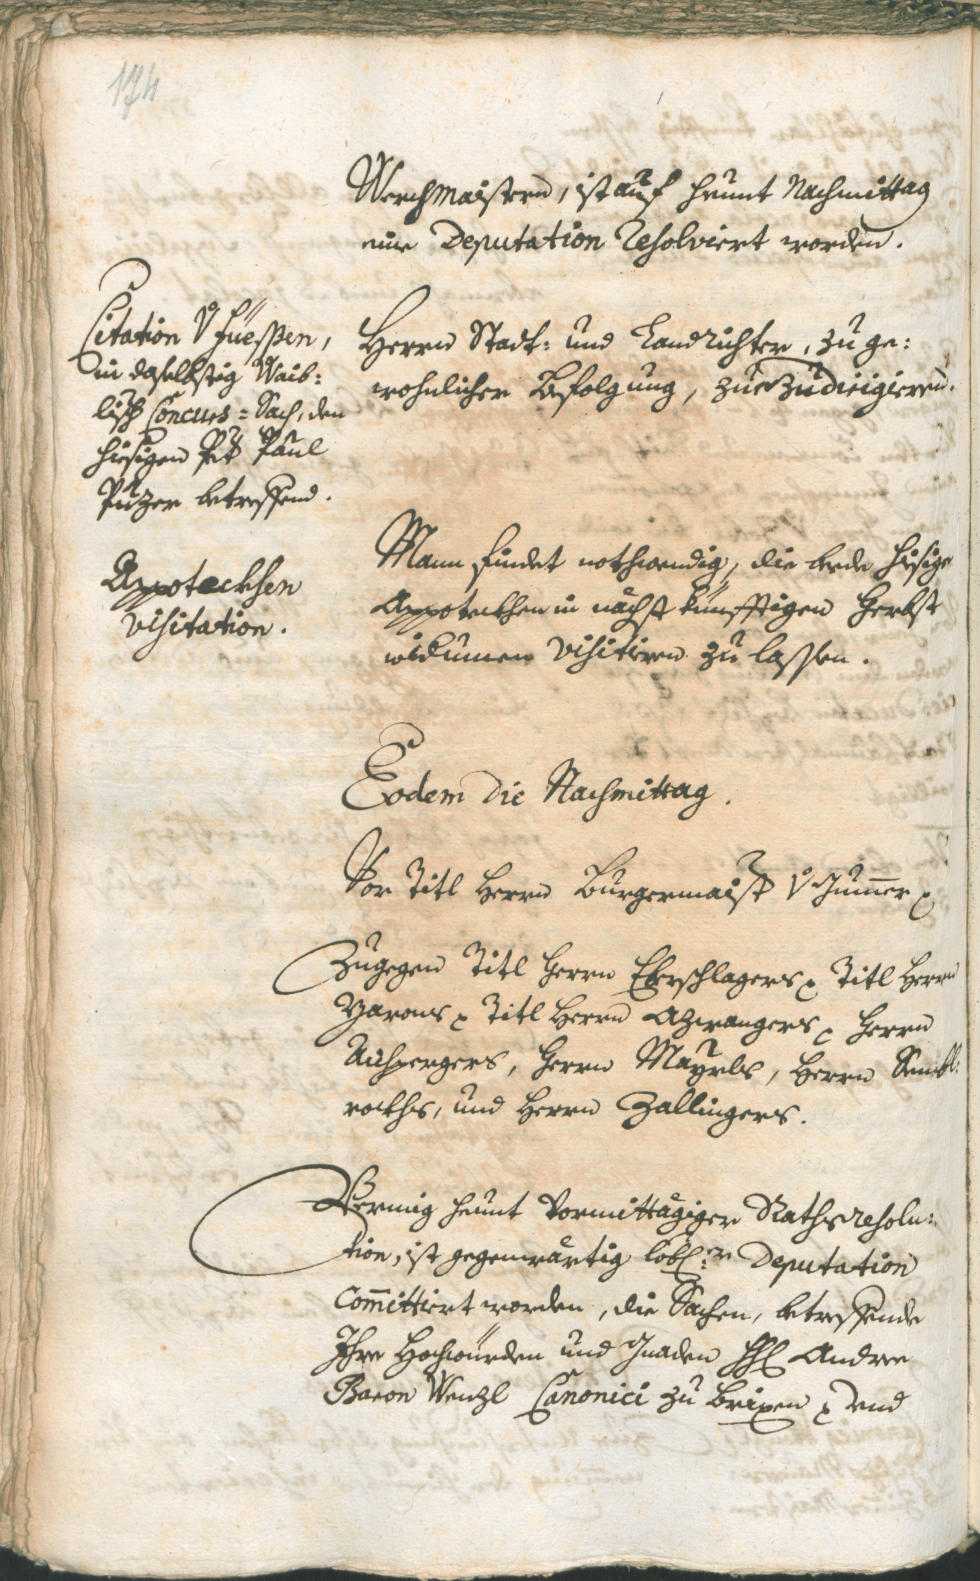 174
Werchmaistern, ist auf heunt Nachmittag
eine Deputation resolviert worden.
Citation v Füessen,
in daselbstig Waib:
lisch Concurs=Sach, den
hiesigen Paul
Puzer betreffend.
Herrn Statt: und Landrichter, zu ge:
wohnlicher Befolgung, zuezudirigieren.
Appoteckhen
visitation.
Mann findet nothwendig, die beede hiesige
Appoteckhen in nächst künfftigen Herbst
widumen visitiren zu lassen.
Eodem die Nachmittag.
Vor Titl Herrn Burgermaistr v Gummer
Zugegen Titl Herrn Eberschlagers Titl Herrn
Titl Herrn Azwangers Herrn
Aichpergers, Herrn Mayrls, Herrn
rockhs, und Herrn Zallingers.
Vermig heunt Vormittägiger Rathsresolu:
tion, ist gegenwärtig löbl:er Deputation
Committiert worden, die Sachen, betreffende
Ihre Hochwürden und Gnaden Andree
Baron Wenzl Canonici zu Brixen und